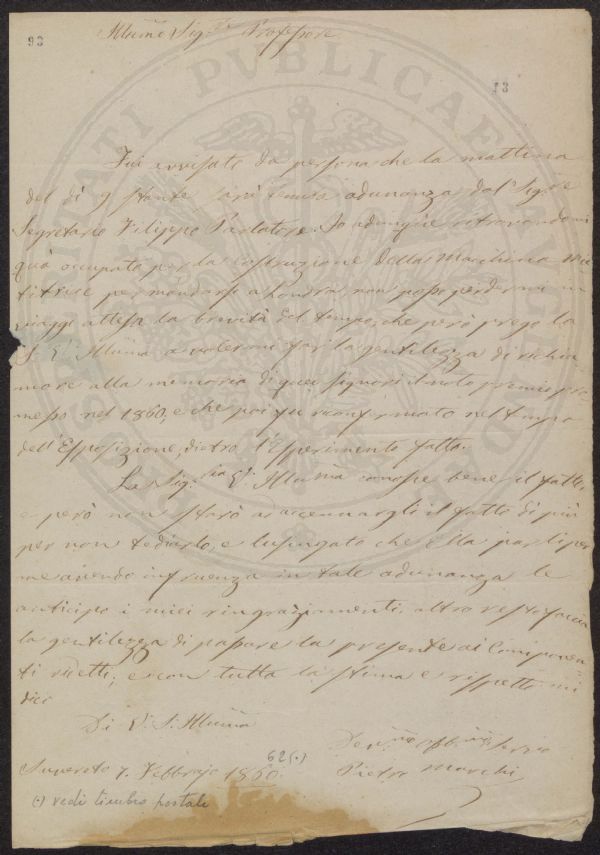 93
Illume Sig.re Professore
13
Fui avvisato da persona che la mattina
del dì 9 stante sarà tenuta adunanza dal Sig.re
Segretario Filippo Parlatore. Io adunque ritrovandomi
quà occupato per la costruzione della Macchina Mie
titrice per mandarsi a Londra, non posso perdermi in
viaggi attesa la brevità del tempo, che però prego la
S. V. Illuma a volermi far la gentilezza di richia
mare alla memoria di quei Signori il noto premio pro
messo nel 1860, e che poi fu riconfermato nel tempo
dell'Esposizione, dietro l'Esperimento fatto.
La Sig.ria V. Illuma conosce bene il fatto,
e però non starò a accennargli il fatto di più
per non tediarlo, e lusingato che Ella parli per
me avendo infruenza in tale adunanza le
anticipo i miei ringraziamenti, altro resto faccia
la gentilezza di passare la presente ai Componen
ti; e con tutta la stima e rispetto mi
dico
Di V. S. Illuma
Dev.mo Obb.mo Servo
Suvereto 7. Febbrajo 1860. 62(·)
Pietro Marchi
(·) vedi timbro postale
PUBLICAE